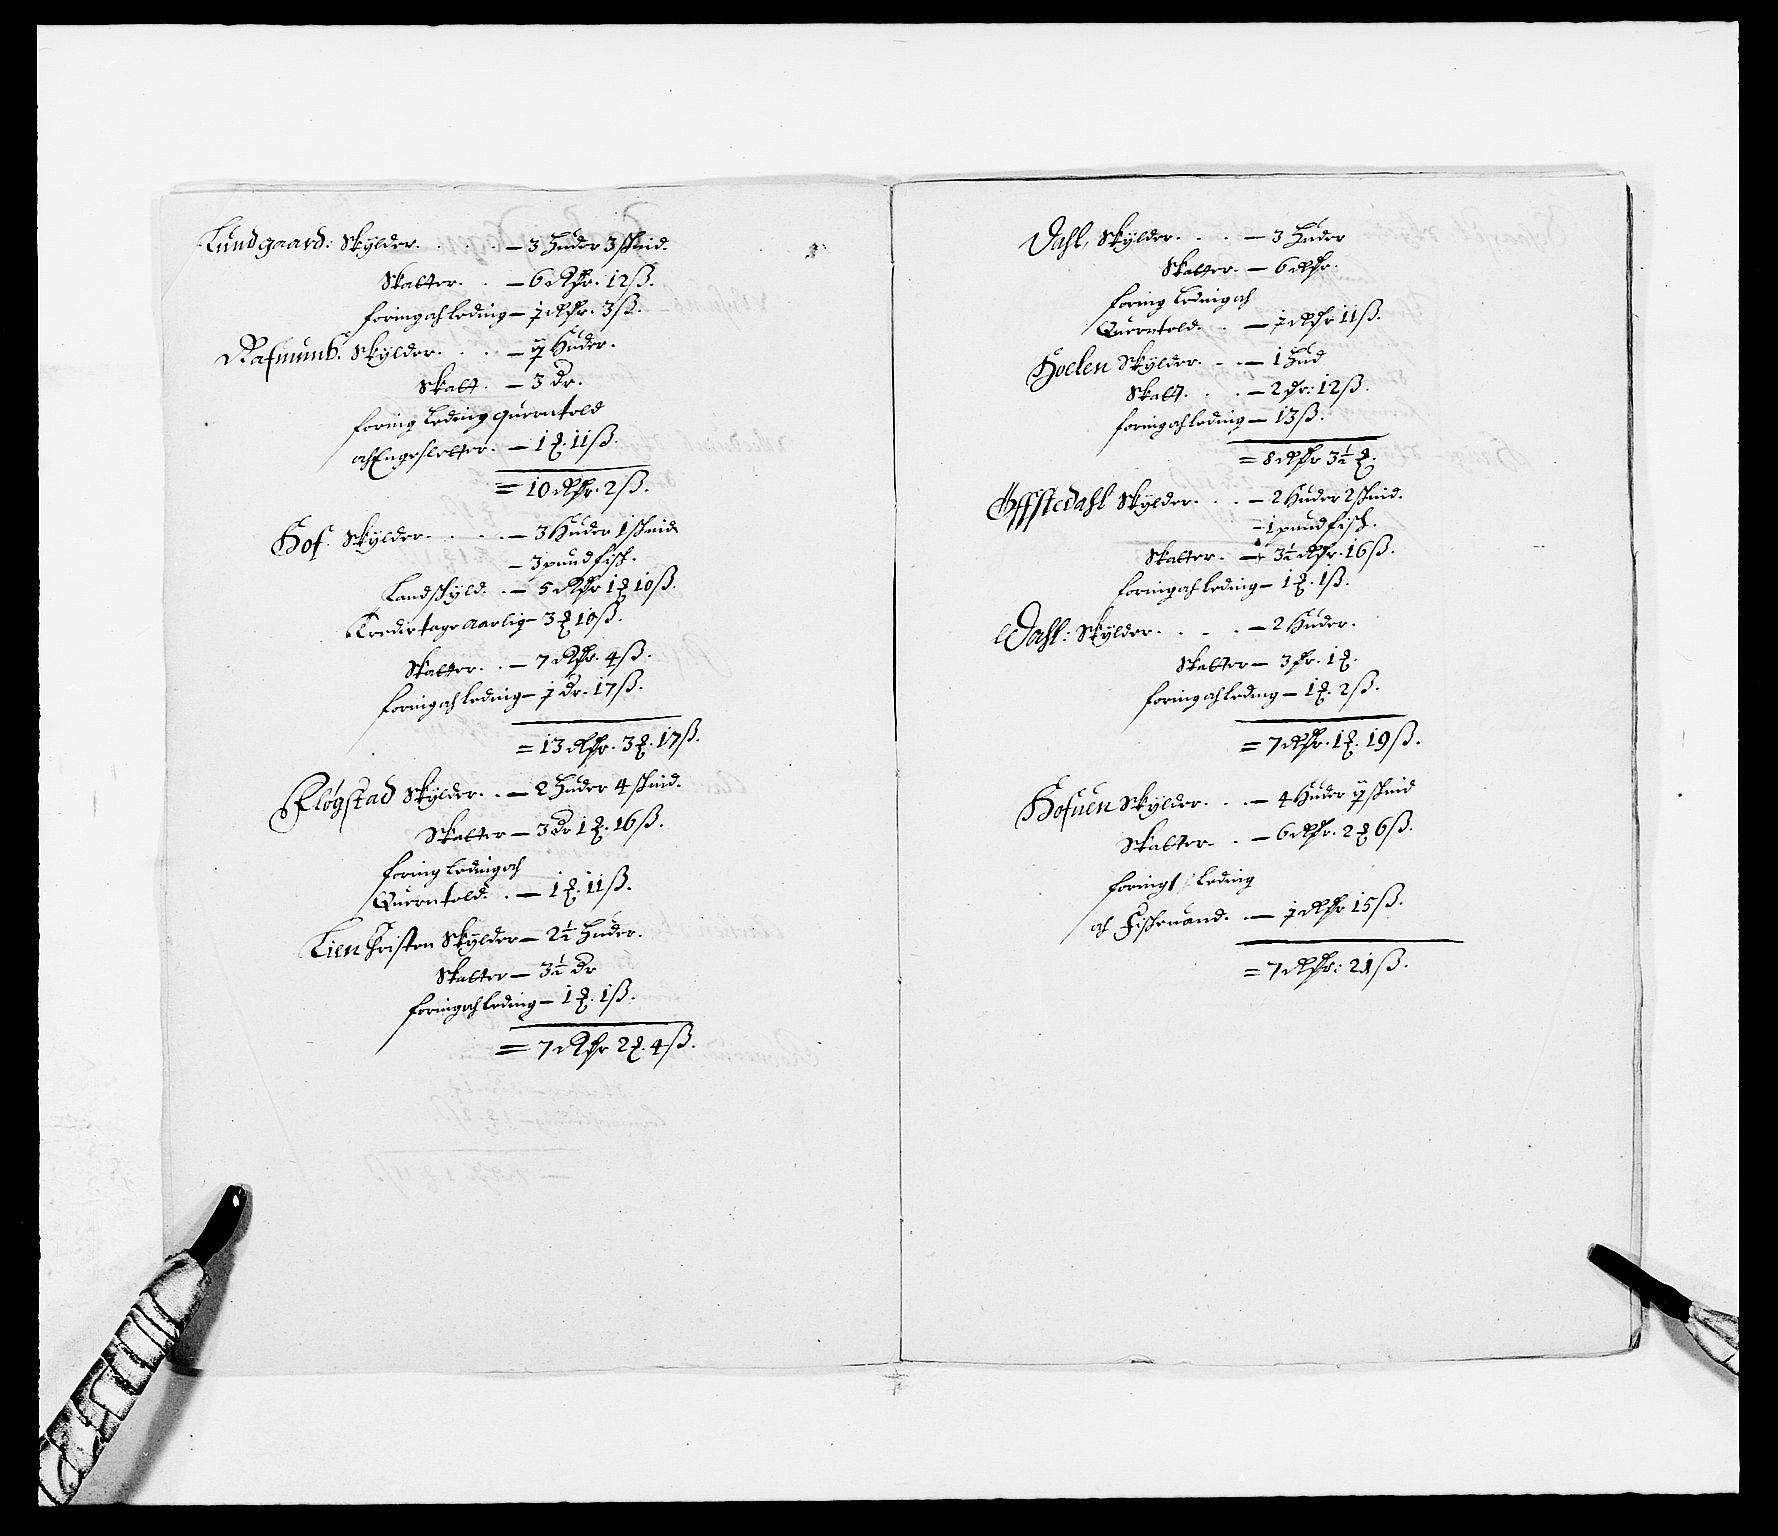 Lundgaard: Skylder. . . . . — 3 Huder 3 skind.
Skatter. . — 6 Rdr. 12 ß.
foring och leding — j Rdr. 3 ß.
Rafnunb. Skylder. . . . — ij Huder.
Skatt. — 3 Dr.
foring leding querntold
och Engesletter. — 1 ₰. 11 ß.
= 10 Rdr. 2 ß.
Hof. Skylder. . . . . — 3 Huder 1 skind
— 3 pund fisk.
Landskyld. . — 5 Rdr 1 ₰ 10 ß.
Tredietage Aarlig — 3 ₰ 10 ß.
Skatter. . — 7 Rdr. 4 ß.
foring och leding — j Dr. 17 ß.
= 13 Rdr. 3 ₰. 17 ß.
Fløgstad Skylder. . — 2 Huder 4 skind.
Skatter — 3 Dr 1 ₰. 16 ß.
foring leding och
Querntold. . — 1 ₰. 11 ß.
Lien Christen Skylder — 2½ Huder.
Skatter — 3½ Dr
foring och leding — 1 ₰. 1 ß.
= 7 Rdr 2 ₰. 4 ß.
Dahl, Skylder. . . — 3 Huder
Skatter. — 6 Rdr.
foring leding och
Querntold. . — j Rdr 11 ß.
Hoelen Skylder. . . — 1 Hud
Skatt. . . — 2 Dr: 12 ß.
foring och leding — 13 ß.
= 8 Rdr 3½ ₰.
Offstedahl Skylder. . . — 2 Huder 2 skind.
— 1 pund fisk.
Skatter. — 3½ Rdr. 16 ß.
foring och leding — 1 ₰. 1 ß.
Dahl: Skylder. . . . — 2 Huder.
Skatter — 3 Dr. 1 ₰.
foring och leding — 1 ₰. 2 ß.
= 7 Rdr. 1 ₰. 19 ß.
Hofuen Skylder. . . — 4 Huder ij skind
Skatter. . — 6 Rdr. 2 ₰ 6 ß.
foring leding
och Fiskeuand. . — j Rdr 15 ß.
= 7 Rdr: 21 ß.